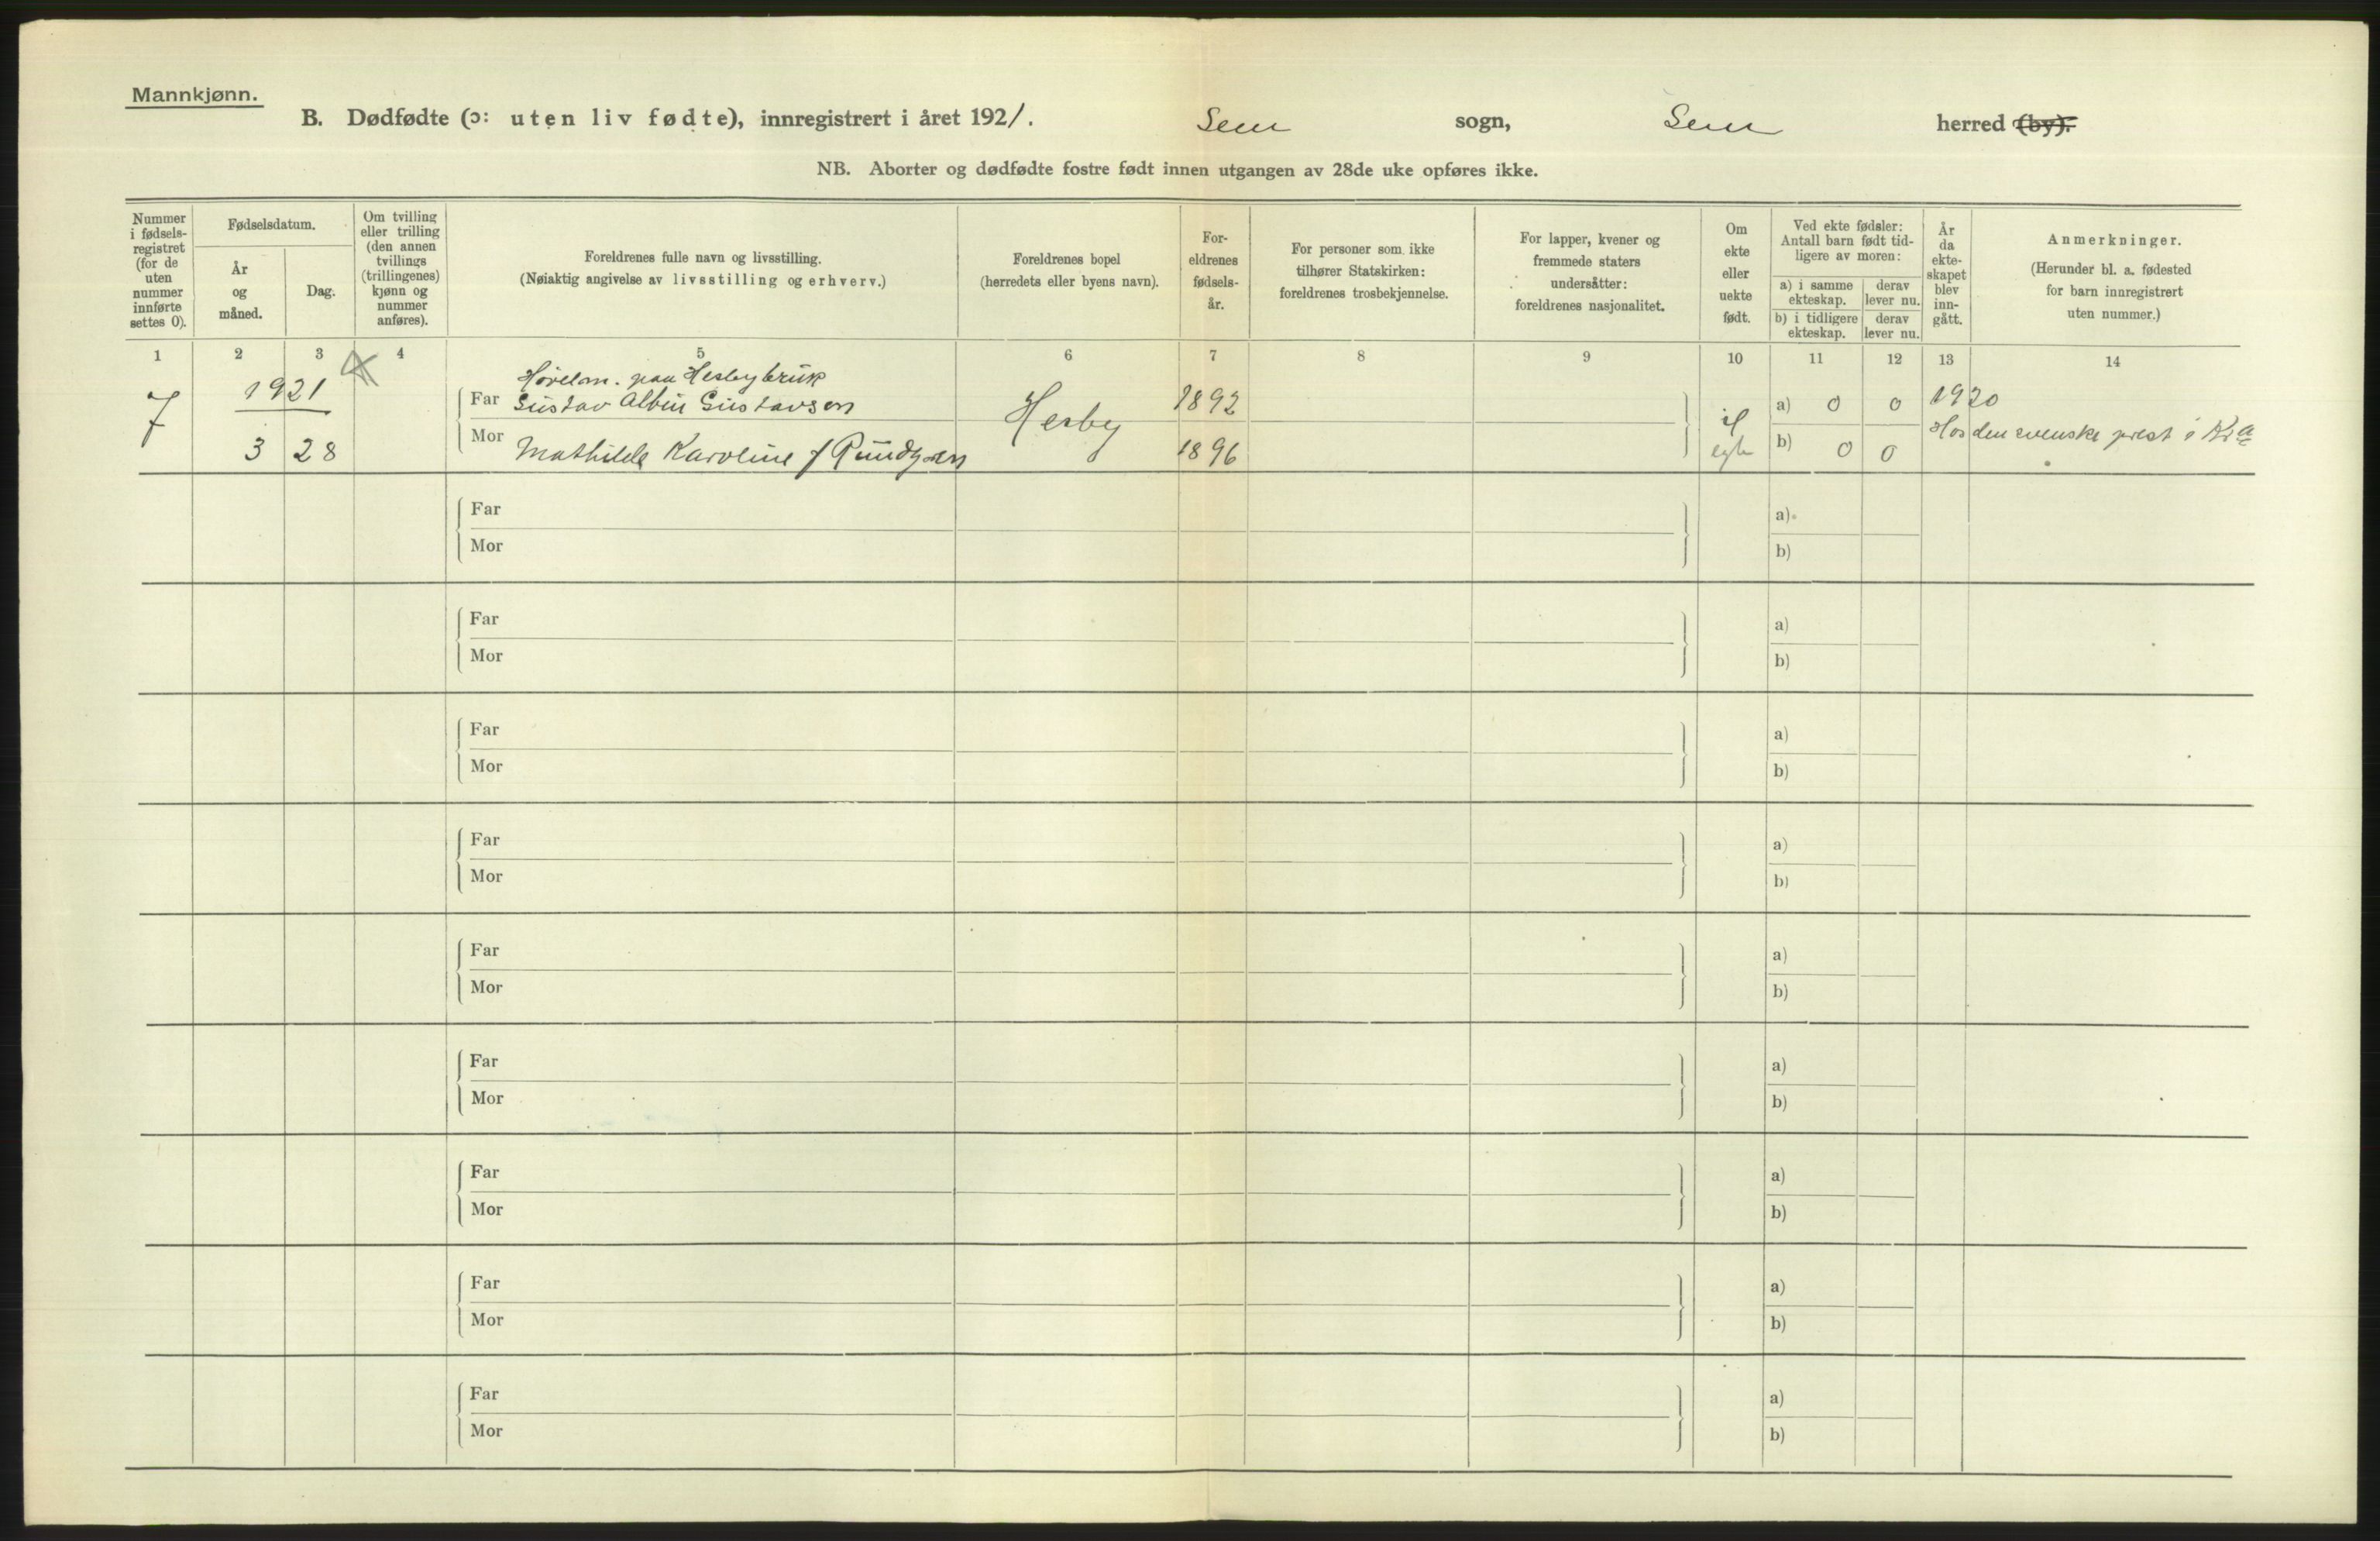 Mannkjønn.
B. Dødfødte (ɔ: uten liv fødte), innregistrert i året 1921. Sem sogn, Sem herred (by).
NB. Aborter og dødfødte fostre født innen utgangen av 28de uke opføres ikke.
Nummer i fødsels-registret (for de uten nummer innførte settes 0).
Fødselsdatum.
År og måned.
Dag.
Om tvilling eller trilling (den annen tvillings (trillingenes) kjønn og nummer anføres).
Foreldrenes fulle navn og livsstilling.
(Nøiaktig angivelse av livsstilling og erhverv.)
Foreldrenes bopel
(herredets eller byens navn).
For-eldrenes fødsels-år.
For personer som ikke tilhører Statskirken: foreldrenes trosbekjennelse.
For lapper, kvener og fremmede staters undersåtter: foreldrenes nasjonalitet.
Om ekte eller uekte født.
Ved ekte fødsler: Antall barn født tid-ligere av moren:
a) i samme ekteskap.
derav lever nu.
b) i tidligere ekteskap.
derav lever nu.
År da ekte-skapet blev inn-gått.
Anmerkninger.
(Herunder bl. a. fødested for barn innregistrert uten nummer.)
1 2 3 4 5 6 7 8 9 10 11 12 13 14
Høvelm. paa Hesby bruk
7 1921 Far Gustav Albin Gustavsen Hesby 1892 a) 0 0 1920
3 28 Mor Mathilde Karoline f 1896 egte b) 0 0 Hos den svenske prest i Kra
Far a)
Mor b)
Far a)
Mor b)
Far a)
Mor b)
Far a)
Mor b)
Far a)
Mor b)
Far a)
Mor b)
Far a)
Mor b)
Far a)
Mor b)
Far a)
Mor b)